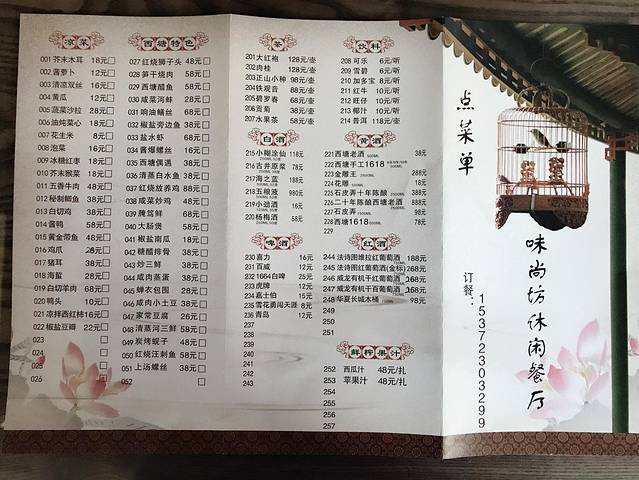 凉菜
001 芥末木耳 18元
002 酱萝卜 12元
003 清凉双丝 16元
004 黄瓜 12元
005 蔬菜沙拉 28元
006 油炖菜心 18元
007 花生米 8元
008 泡菜 16元
009 冰糖红枣 18元
010 芥末猴菜 18元
011 五香牛肉 48元
012 秘制鲫鱼 38元
013 白切鸡 38元
014 酱鸭 58元
015 黄金带鱼 48元
016 鸡爪
017 猪耳 38元
018 海蜇 28元
019 白切羊肉 68元
020 鸭头 10元
021 凉拌西红柿 16元
022 椒盐豆瓣 22元
023
024
025
026
西塘特色
027 红烧狮子头 48元
028 笋干烧肉 58元
029 西塘醋鱼 58元
030 咸菜河蚌 28元
031 响油鳝丝 68元
032 椒盐旁边鱼 38元
033 盐水虾 68元
034 酱爆螺丝 16元
035 西塘偶遇 38元
036 清蒸白水鱼 38元
037 红烧放养鸡 88元
038 咸菜炒鸡 48元
039 腌笃鲜 68元
040 大肠煲 58元
041 椒盐南瓜 18元
042 糖醋排骨 38元
043 炒三鲜 38元
044 咸肉蒸蛋 38元
045 蜂衣包圆 28元
046 咸肉小土豆 38元
047 家常豆腐 26元
048 清蒸河三鲜 58元
049 炭烤蚬子 48元
050 红烧汪刺鱼 58元
051 上汤螺丝 38元
052
茶
201 大红袍 128元/壶
202 肉桂 128元/壶
203 正山小种 98元/壶
204 铁观音 88元/壶
205 碧罗春 68元/壶
206 贡菊 38元/壶
207 水果茶 58元/壶
白酒
215 小糊涂仙 118元
216 古井原浆 78元
217 海之蓝 188元
218 五粮液 980元
219 小劲酒 16元
220 杨梅酒 58元
啤酒
230 嘉力 16元
231 百威 12元
232 1664白啤 25元
233 虎牌 12元
234 嘉士伯 15元
235 雪花勇闯天涯 8元
236 青岛 12元
237
238
239
240
241
242
243
饮料
208 可乐 6元/听
209 雪碧 6元/听
210 加多宝 8元/听
211 红牛 10元/听
212 旺仔 10元/听
213 椰汁 10元/听
214 普洱 118元/听
黄酒
221 西塘老酒 38元
222 西塘手工1618
223 金雕王 288元
224 花雕 18元
225 石皮弄十年陈酿 388元
226 二十年陈酿西塘老酒 888元
227 石皮弄 98元
228 西塘1618 78元
229
红酒
244 法诗图维拉红葡萄酒 188元
245 法诗图红葡萄酒(金标) 268元
246 威龙有机干红葡萄酒 168元
247 威龙有机干百葡萄酒 158元
248 华夏长城木桶 98元
鲜榨果汁
252 西瓜汁 48元/扎
253 苹果汁 48元/扎
254
255
256
257
点菜单
味尚坊休闲餐厅
订餐：15372303299